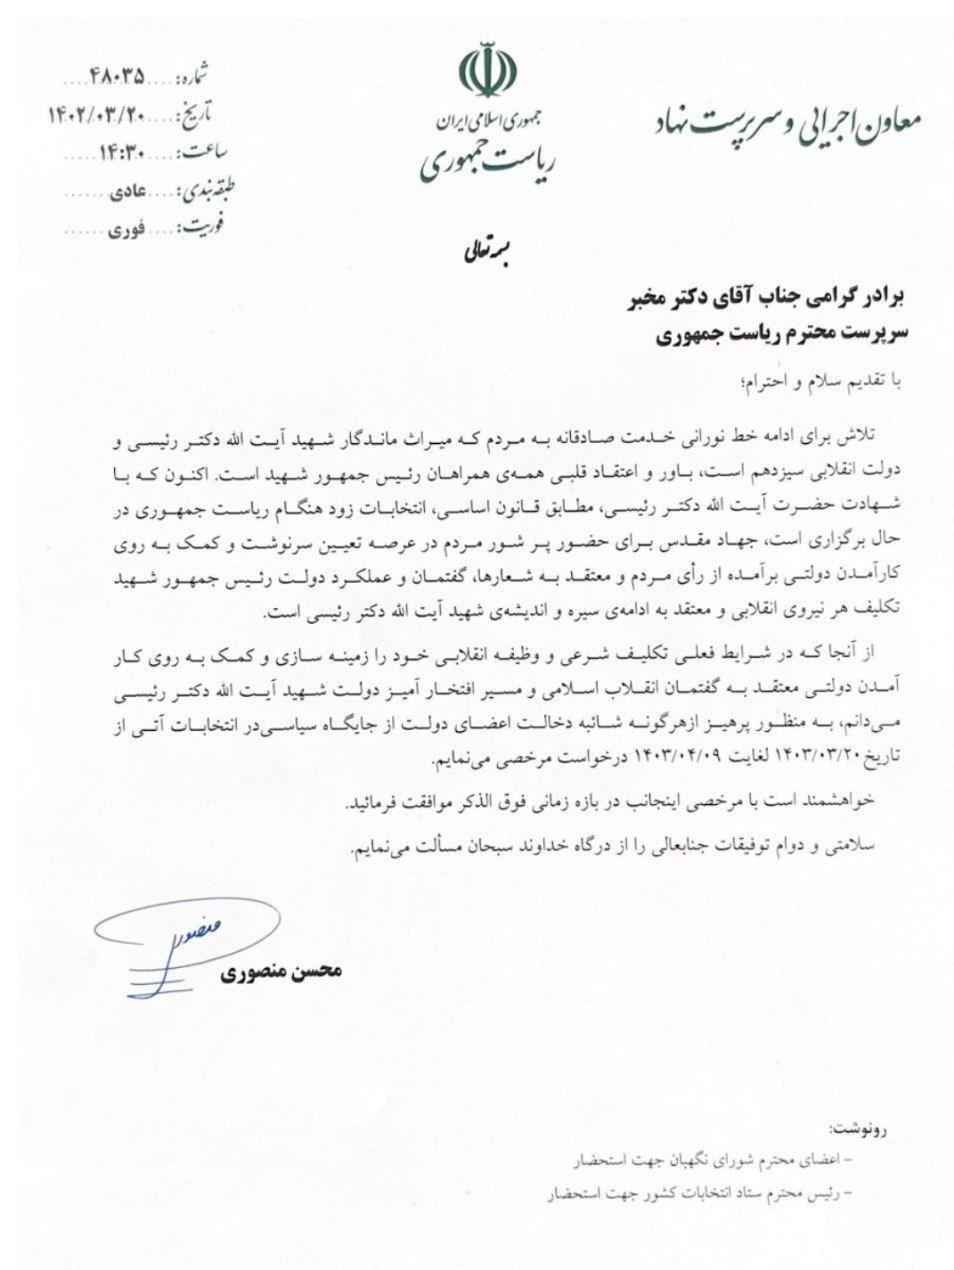 جمهوری اسلامی ایران
ریاست جمهوری
معاون اجرایی و سرپرست نهاد
شماره:....۴۸۰۳۵....
تاریخ:....۱۴۰۲/۰۳/۲۰
ساعت:....۱۴:۳۰.....
طبقه‌بندی:....عادی......
فوریت:....فوری......
بسمه تعالی
برادر گرامی جناب آقای دکتر مخبر
سرپرست محترم ریاست جمهوری
با تقدیم سلام و احترام؛
تلاش برای ادامه خط نورانی خدمت صادقانه به مردم که میراث ماندگار شهید آیت الله دکتر رئیسی و
دولت انقلابی سیزدهم است، باور و اعتقاد قلبی همه‌ی همراهان رئیس جمهور شهید است. اکنون که با
شهادت حضرت آیت الله دکتر رئیسی، مطابق قانون اساسی، انتخابات زود هنگام ریاست جمهوری در
حال برگزاری است، جهاد مقدس برای حضور پر شور مردم در عرصه تعیین سرنوشت و کمک به روی
کارآمدن دولتی برآمده از رأی مردم و معتقد به شعارها، گفتمان و عملکرد دولت رئیس جمهور شهید
تکلیف هر نیروی انقلابی و معتقد به ادامه‌ی سیره و اندیشه‌ی شهید آیت الله دکتر رئیسی است.
از آنجا که در شرایط فعلی تکلیف شرعی و وظیفه انقلابی خود را زمینه سازی و کمک به روی کار
آمدن دولتی معتقد به گفتمان انقلاب اسلامی و مسیر افتخار آمیز دولت شهید آیت الله دکتر رئیسی
می‌دانم، به منظور پرهیز ازهرگونه شائبه دخالت اعضای دولت از جایگاه سیاسی‌در انتخابات آتی از
تاریخ ۱۴۰۳/۰۳/۲۰ لغایت ۱۴۰۳/۰۴/۰۹ درخواست مرخصی می‌نمایم.
خواهشمند است با مرخصی اینجانب در بازه زمانی فوق الذکر موافقت فرمائید.
سلامتی و دوام توفیقات جنابعالی را از درگاه خداوند سبحان مسألت می‌نمایم.
منصوری
محسن منصوری
رونوشت:
- اعضای محترم شورای نگهبان جهت استحضار
- رئیس محترم ستاد انتخابات کشور جهت استحضار